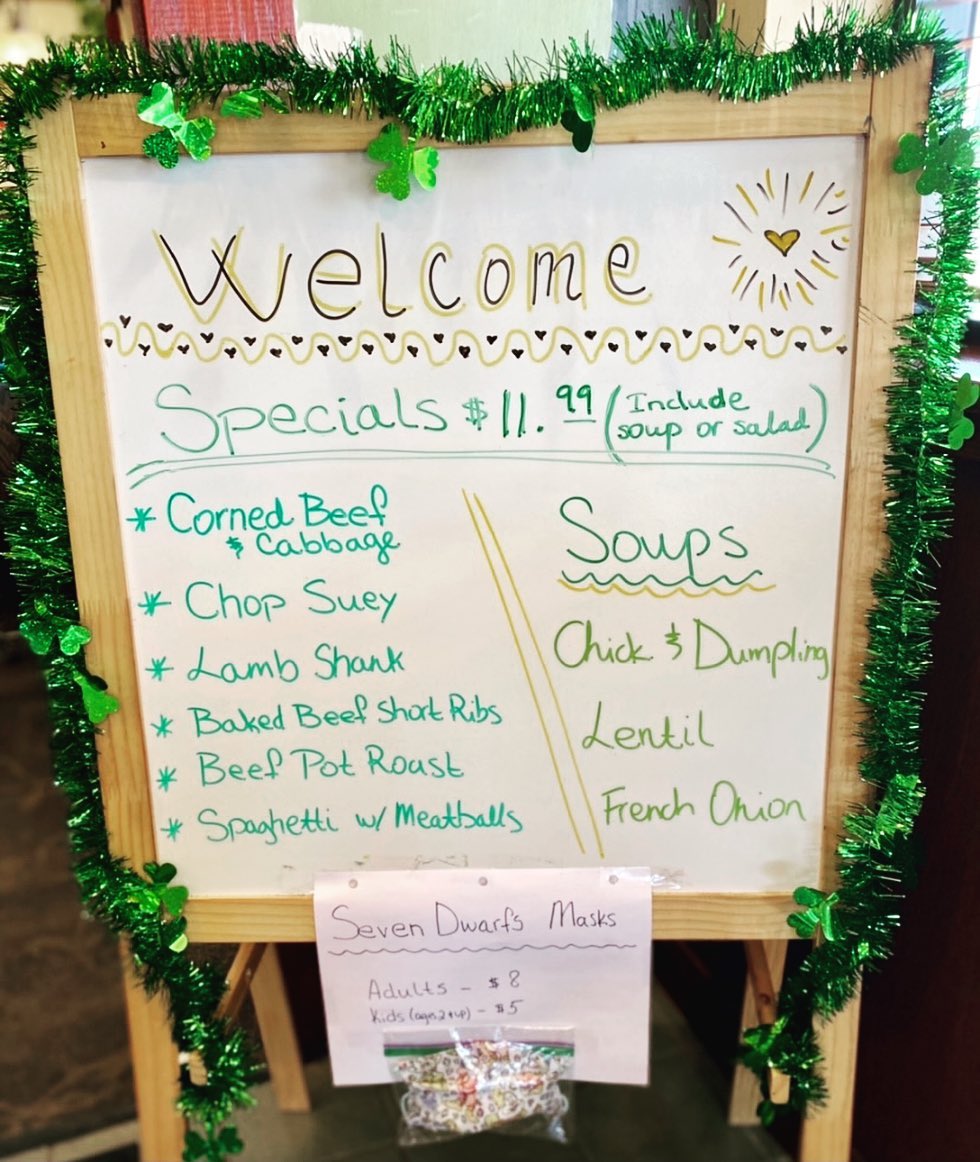 Welcome
Specials $11.99 (Include
soup or salad)
* Corned Beef
& Cabbage
* Chop Suey
* Lamb Shank
* Baked Beef Short Ribs
* Beef Pot Roast
* Spaghetti w/ Meatballs
Soups
Chick & Dumpling
Lentil
French Onion
Seven Dwarfs Masks
Adults - $8
Kids (ages 2 & up) - $5